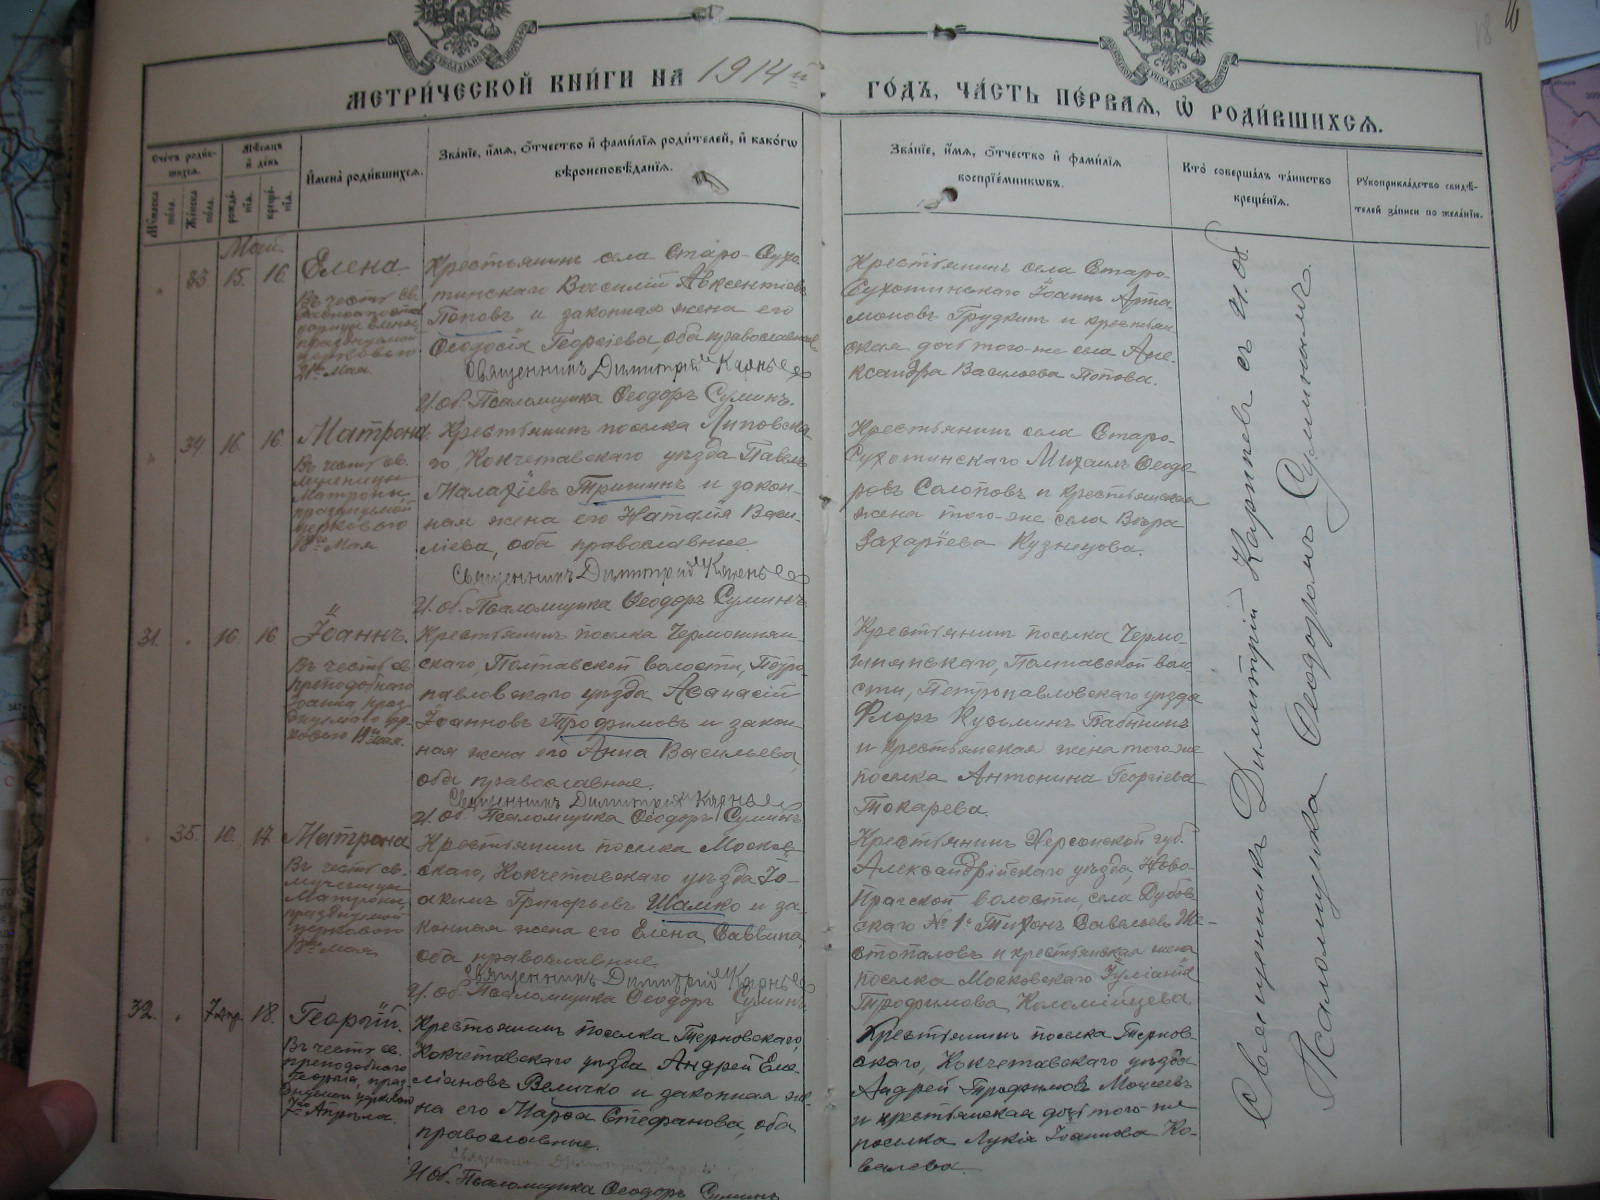 МЕТРИ́ЧЕСКОЙ КНИ́ГИ НА 1914й ГО́ДЪ, ЧА́СТЬ ПЕ́РВАЯ, Ѡ РОДИ́ВШИХСЯ.
Сче́тъ роди́в-
шихся.
Мꙋ́жеска по́ла.
Же́нска по́ла.
Мѣ́сяцъ
и҆ де́нь
рожде́-
нїя.
креще́-
нїя.
И҆мена̀ роди́вшихся.
Зва́нїе, и҆́мя, ѻ҆́тчество и҆ фами́лїя роди́телей, и҆ како́гѡ
вѣроисповѣ́данїя.
Зва́нїе, и҆́мя, ѻ҆́тчество и҆ фами́лїя
воспрїе́мникѡвъ.
Кто̀ соверша́лъ та́инство
креще́нїя.
Рꙋкоприкла́дство свидѣ́-
телей за́писи по жела́нїю.
Май.
33. 15. 16. Елена
Въ честь св.
равноапост.
царицы Елены,
празднуемой
церковью
21го Мая.
Крестьянинъ села Старо-Сухо
тинскаго Василій Авксентіевъ
Поповъ и законная жена его
Ѳеодосія Георгіева, оба православные
Священникъ Димитрій Карпневъ
И. об. Псаломщика Ѳеодоръ Суминъ.
Крестьянинъ села Старо-
Сухотинскаго Іоаннъ Арта
моновъ Грудкинъ и крестьян
ская дочь того-же села Але-
ксандра Васильева Попова.
34. 16. 16. Матрона
Въ честь св.
мученицы
Матроны,
празднуемой
церковью
18го Мая
Крестьянинъ поселка Липовска
го, Кокчетавскаго уѣзда Павелъ
Малахіевъ Тришинъ и закон-
ная жена его Наталія Васи-
ліева, оба православные.
Священникъ Димитрій Карпневъ
И. об. Псаломщика Ѳеодоръ Суминъ
Крестьянинъ села Старо-
Сухотинскаго Михаилъ Ѳеодо
ровъ Солоповъ и крестьянская
жена того-же села Вѣра
Захаріева Кузнецова.
31. 16 16 Іоаннъ.
Въ честь св.
преподобнаго
Іоанна, праз
днуемаго цер
ковью 19 мая.
Крестьянинъ поселка Чермошнян
скаго, Полтавской волости, Петро
павловскаго уѣзда Аѳанасій
Іоанновъ Трофимовъ и закон
ная жена его Анна Васильева,
оба православные.
Священникъ Димитрій Карпневъ
И. об. Псаломщика Ѳеодоръ Суминъ
Крестьянинъ поселка Чермо-
шнянскаго, Полтавской воло
сти, Петропавловскаго уѣзда
Флоръ Кузьминъ Бабынинъ
и крестьянская жена того же
поселка Антонина Георгіева
Токарева.
35. 10. 17 Матрона
Въ честь св.
мученицы
Матроны,
празднуемой
церковью
18го мая
Крестьянинъ поселка Москов
скаго, Кокчетавскаго уѣзда Іо-
акимъ Григорьевъ Шамко и за-
конная жена его Елена Саввина,
оба православные.
Священникъ Димитрій Карпневъ
И. об. Псаломщика Ѳеодоръ Суминъ
Крестьянинъ Херсонской губ.
Александрійскаго уѣзда, Ново-
Прагской волости, села Дубов
скаго № 1е Тихонъ Савельевъ Ше-
стопаловъ и крестьянская жена
поселка Московскаго Іуліанія
Трофимова Коломійцева
32. 7 Апр. 18. Георгій.
Въ честь св.
преподобнаго
Георгія, праз
днуемаго церковью
7го Апрѣля.
Крестьянинъ поселка Терновскаго,
Кокчетавскаго уѣзда Андрей Еме-
ліановъ Величко и законная же-
на его Марѳа Стефанова, оба
православные.
Священникъ Димитрій Карпневъ
И об. Псаломщика Ѳеодоръ Суминъ
Крестьянинъ поселка Тернов-
скаго, Кокчетавскаго уѣзда
Андрей Трофимовъ Моисеевъ
и крестьянская дочь того-же
поселка Лукія Іоаннова Ко-
валева.
Священникъ Димитрій Карпневъ съ И. об.
Псаломщика Ѳеодоромъ Суминымъ.